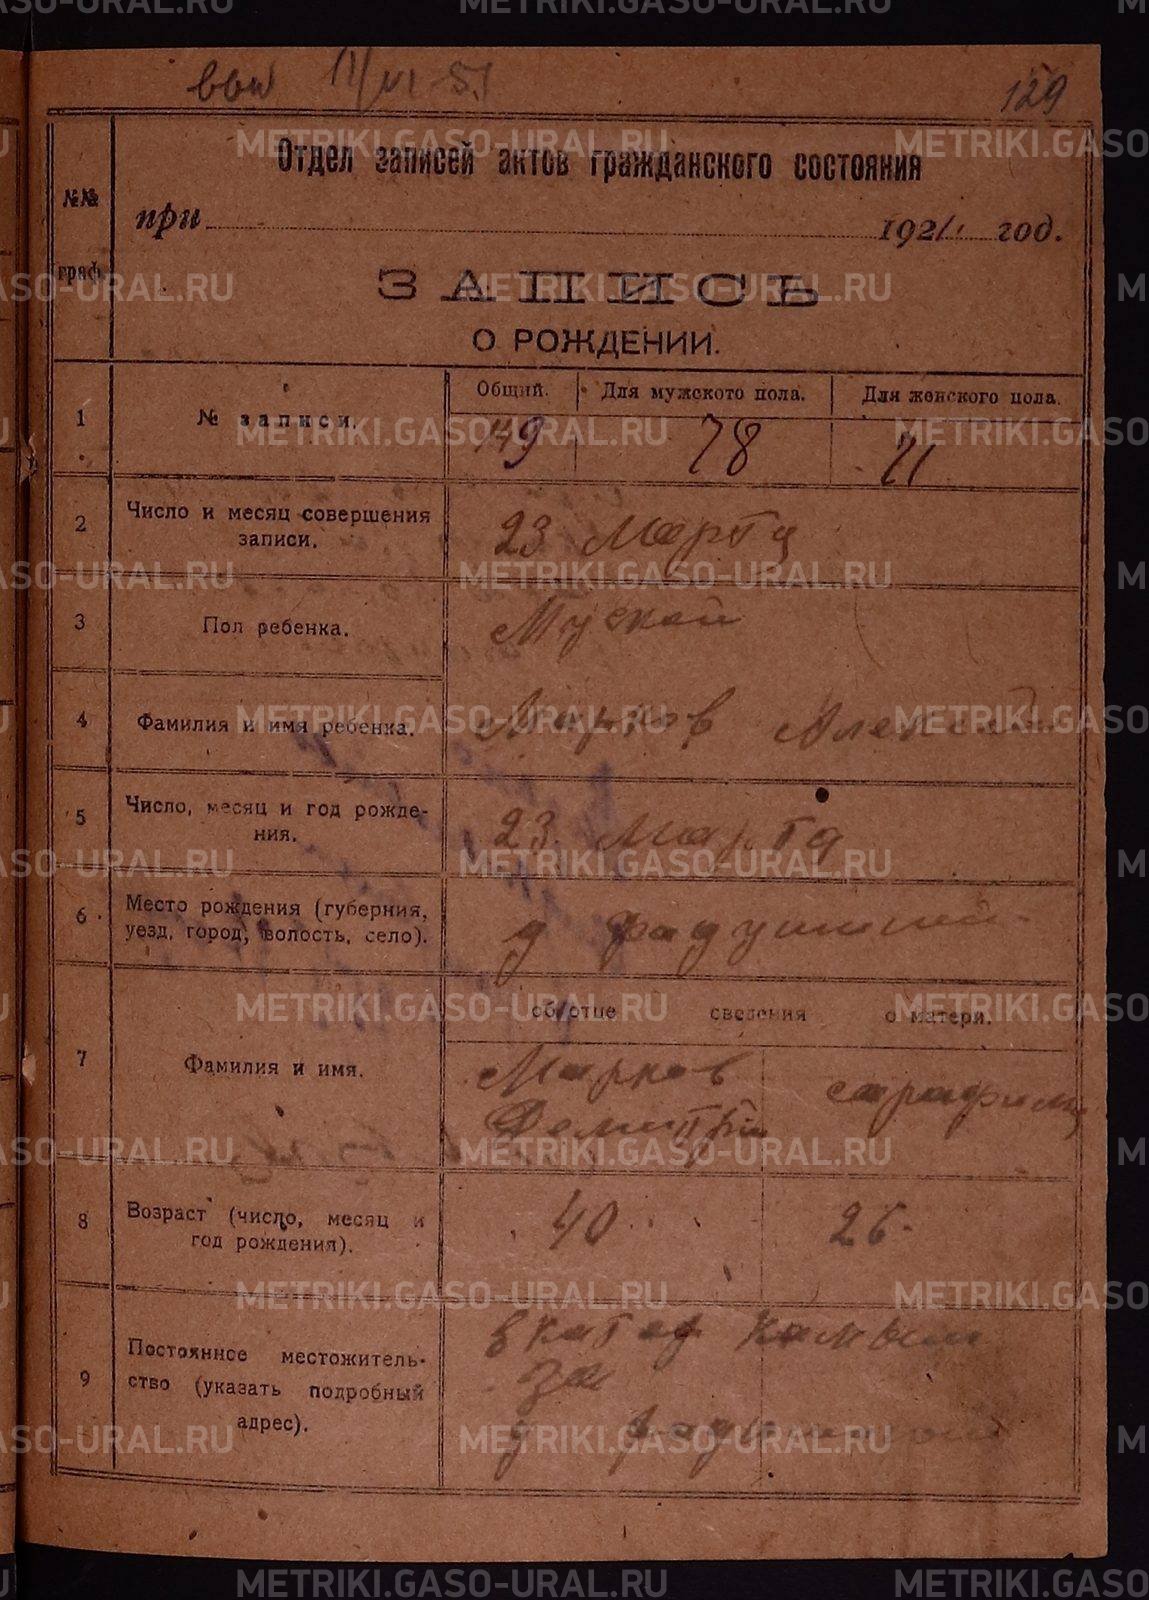 129
Отдел записей актов гражданского состояния
№№ граф.
при 1921 год.
ЗАПИСЬ
О РОЖДЕНИИ.
1
№ записи.
Общий. Для мужского пола. Для женского пола.
149 78 71
2
Число и месяц совершения
записи.
23 Марта
3
Пол ребенка.
Муской
4
Фамилия и имя ребенка.
Марков Алексей
5
Число, месяц и год рожде-
ния.
23 Марта
6
Место рождения (губерния,
уезд, город, волость, село).
д
7
Фамилия и имя.
об отце сведения о матери.
Марков
серафима
8
Возраст (число, месяц и
год рождения).
40 26
9
Постоянное местожитель-
ство (указать подробный
адрес).
д
METRIKI.GASO-URAL.RU